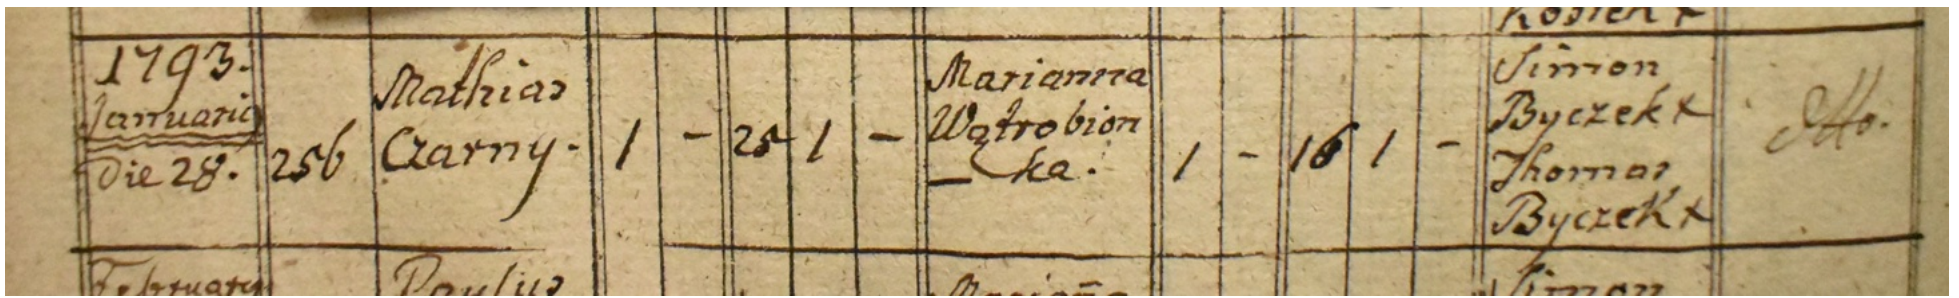 1793.
Januarij
Die 28.
256
Mathias
Czarny.
1 - 25 1 -
Marianna
Wątrobion
- ka.
1 - 16 1 -
Simon
Byczek x
Thomas
Byczek x
dtto.
Paulus
Simon